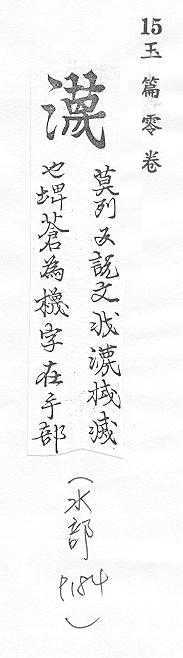 15 玉篇零卷
瀎
莫列反說文泧瀎栻滅
也埤蒼為櫗字在手部
(水部 P184)